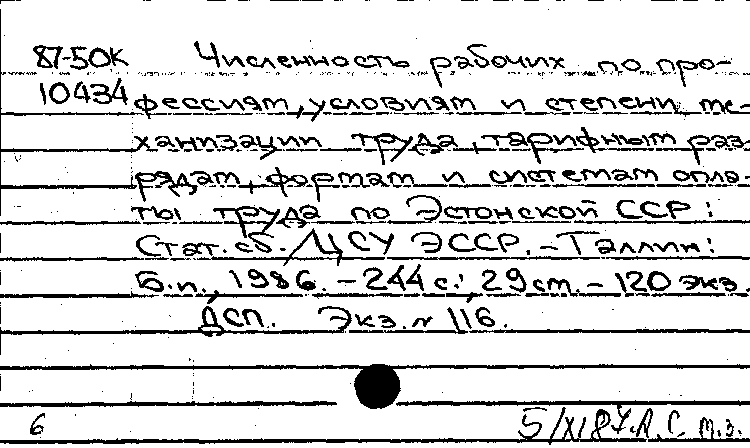 87-50К Численность рабочих по про-
10434 фессиям, условиям и степени ме-
ханизации труда, тарифным раз-
рядам, формам и системам опла-
ты труда по Эстонской ССР:
Стат. сб. /ЦСУ ЭССР. – Таллин:
Б.и., 1986. – 244 с.; 29 см. – 120 экз.
ДСП. Экз. № 116.
6 5/XI 87. Л.С. м.з.